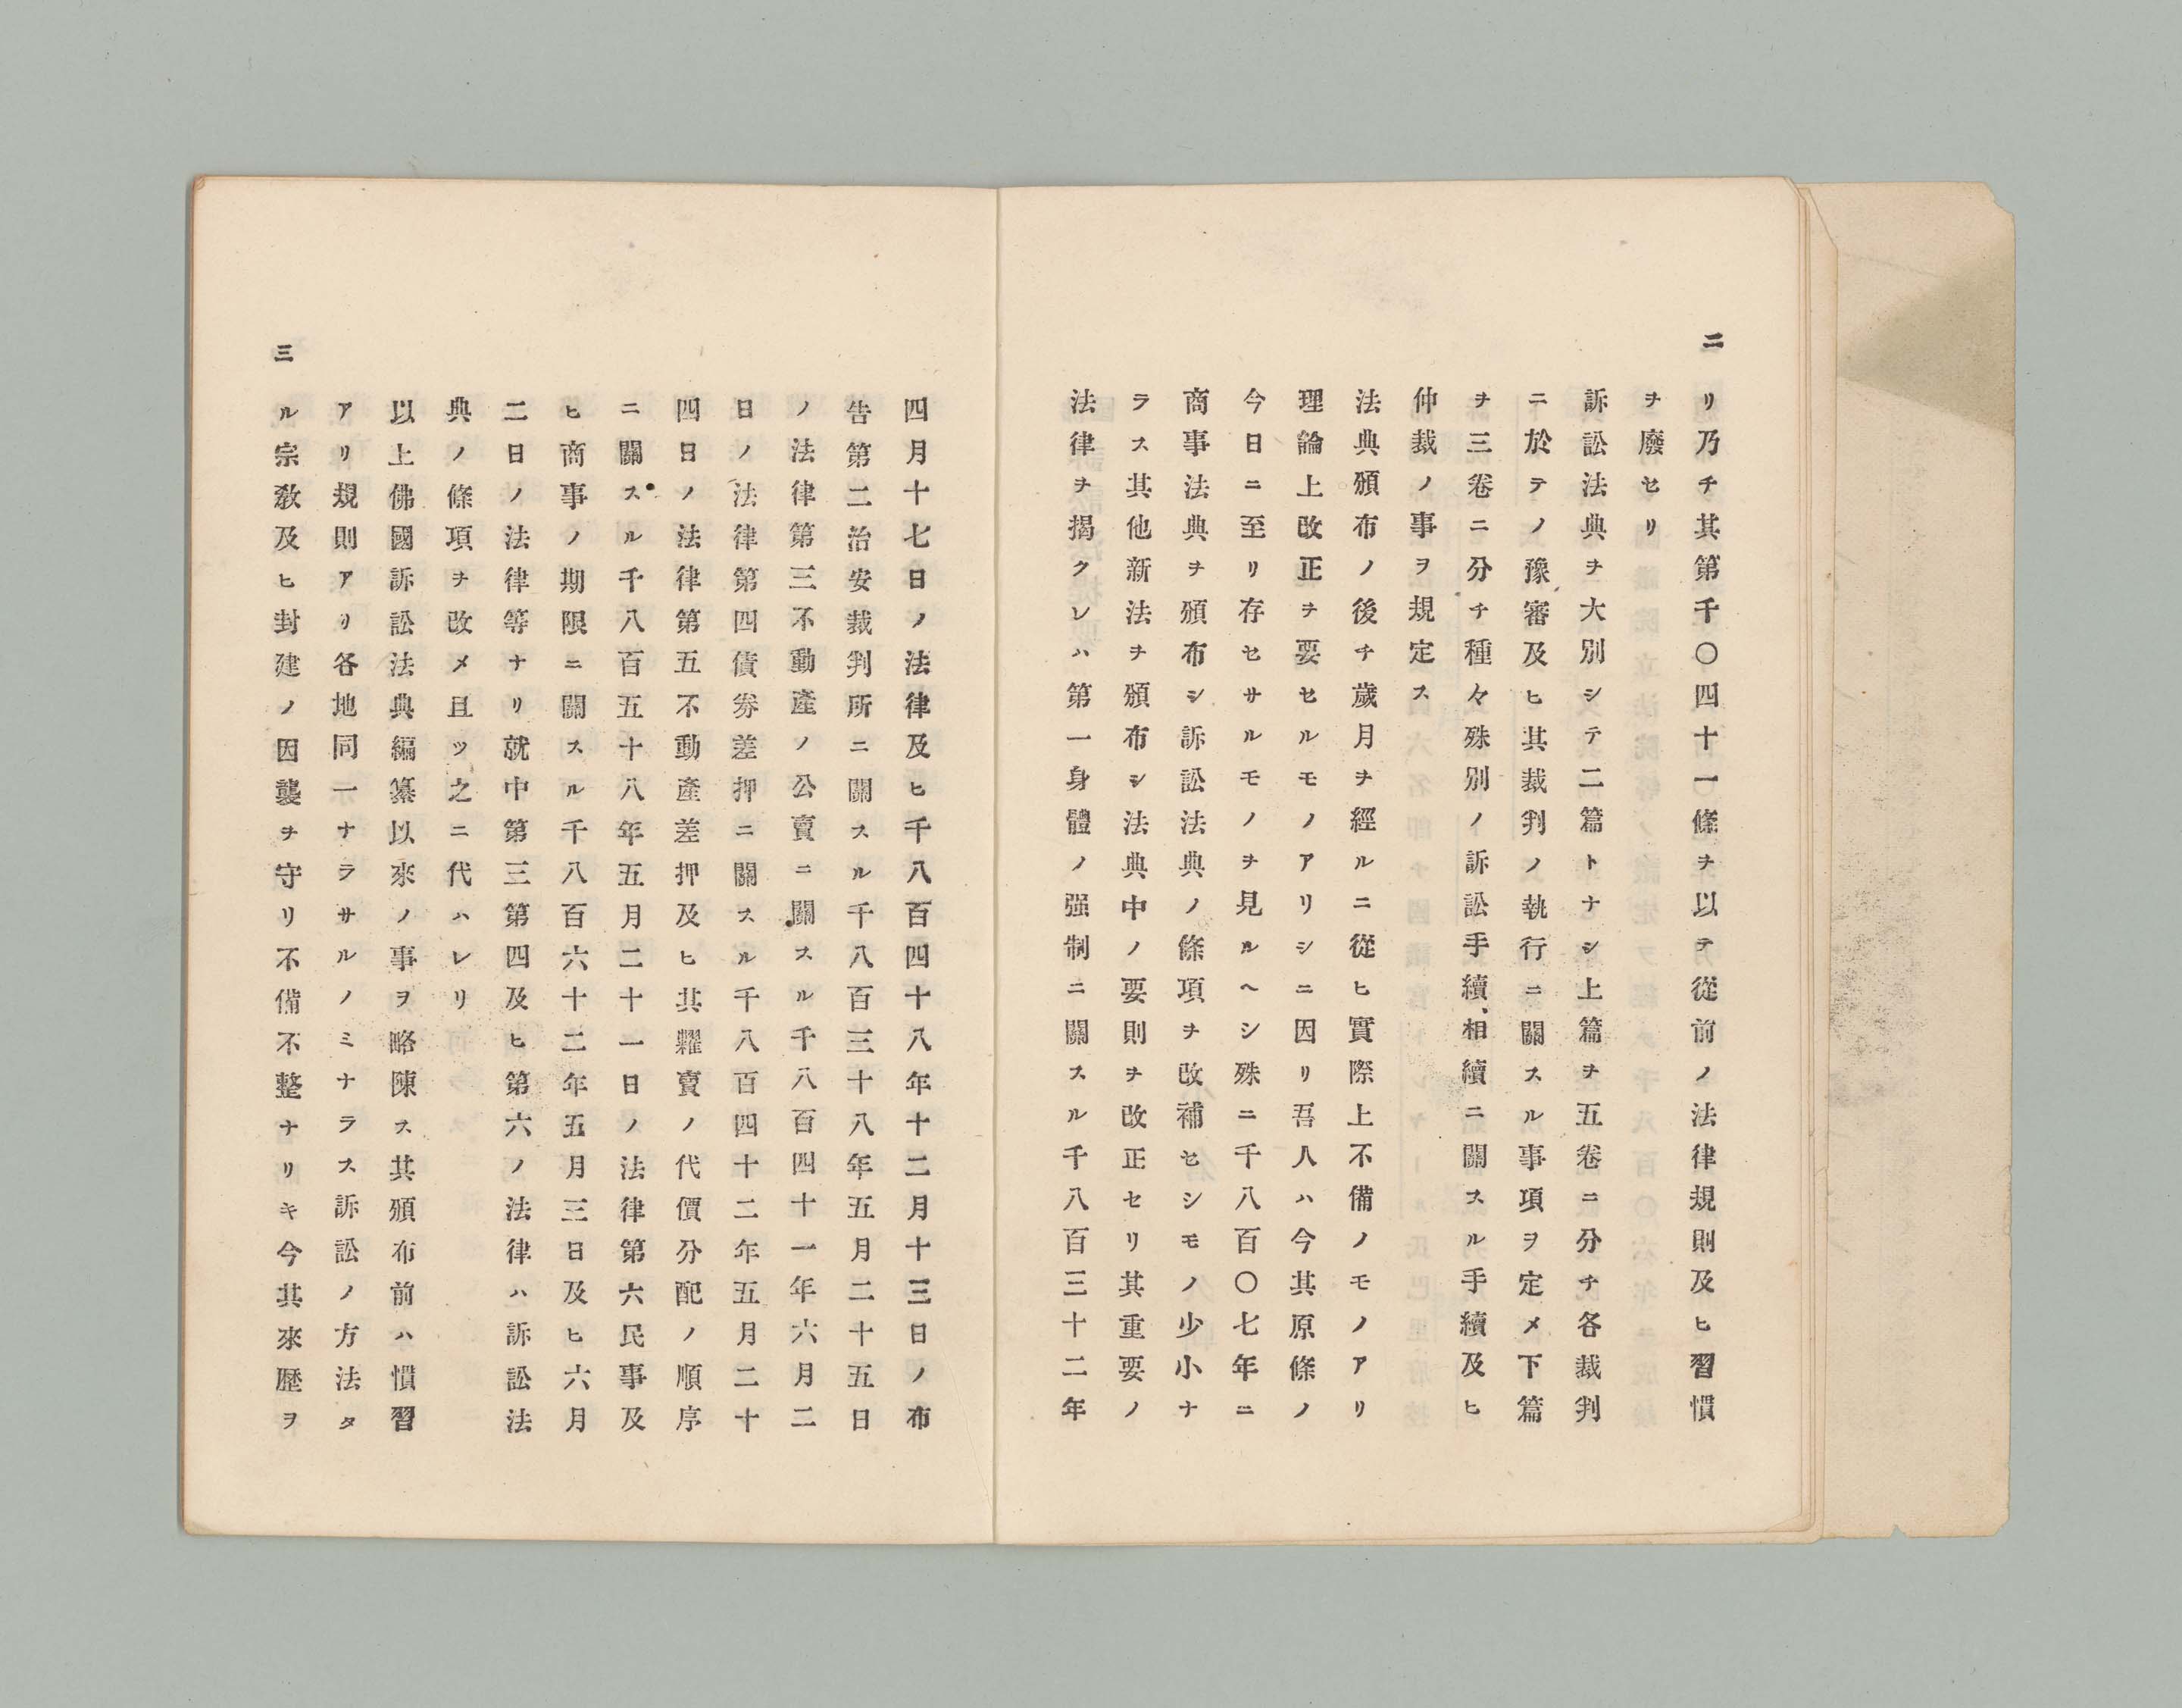 二
リ乃チ其第千〇四十一條ヲ以テ從前ノ法律規則及ヒ習慣
ヲ廢セリ
訴訟法典ヲ大別シテ二篇トナシ上篇ヲ五卷ニ分チ各裁判
ニ於テノ豫審及ヒ其裁判ノ執行ニ關スル事項ヲ定メ下篇
ヲ三卷ニ分チ種々殊別ノ訴訟手續、相續ニ關スル手續及ヒ
仲裁ノ事ヲ規定ス
法典頒布ノ後チ歲月ヲ經ルニ從ヒ實際上不備ノモノアリ
理論上改正ヲ要セルモノアリシニ因リ吾人ハ今其原條ノ
今日ニ至リ存セサルモノヲ見ルヘシ殊ニ千八百〇七年ニ
商事法典ヲ頒布シ訴訟法典ノ條項ヲ改補セシモノ少小ナ
ラス其他新法ヲ頒布シ法典中ノ要則ヲ改正セリ其重要ノ
法律ヲ揭クレハ第一身體ノ强制ニ關スル千八百三十二年
四月十七日ノ法律及ヒ千八百四十八年十二月十三日ノ布
告第二治安裁判所ニ關スル千八百三十八年五月二十五日
ノ法律第三不動產ノ公賣ニ關スル千八百四十一年六月二
日ノ法律第四債券差押ニ關スル千八百四十二年五月二十
四日ノ法律第五不動產差押及ヒ其糶賣ノ代價分配ノ順序
ニ關スル千八百五十八年五月二十一日ノ法律第六民事及
ヒ商事ノ期限ニ關スル千八百六十二年五月三日及ヒ六月
二日ノ法律等ナリ就中第三第四及ヒ第六ノ法律ハ訴訟法
典ノ條項ヲ改メ且ツ之ニ代ハレリ
以上佛國訴訟法典編纂以來ノ事ヲ略陳ス其頒布前ハ慣習
アリ規則アリ各地同一ナラサルノミナラス訴訟ノ方法タ
ル宗敎及ヒ封建ノ因襲ヲ守リ不備不整ナリキ今其來歷ヲ
三